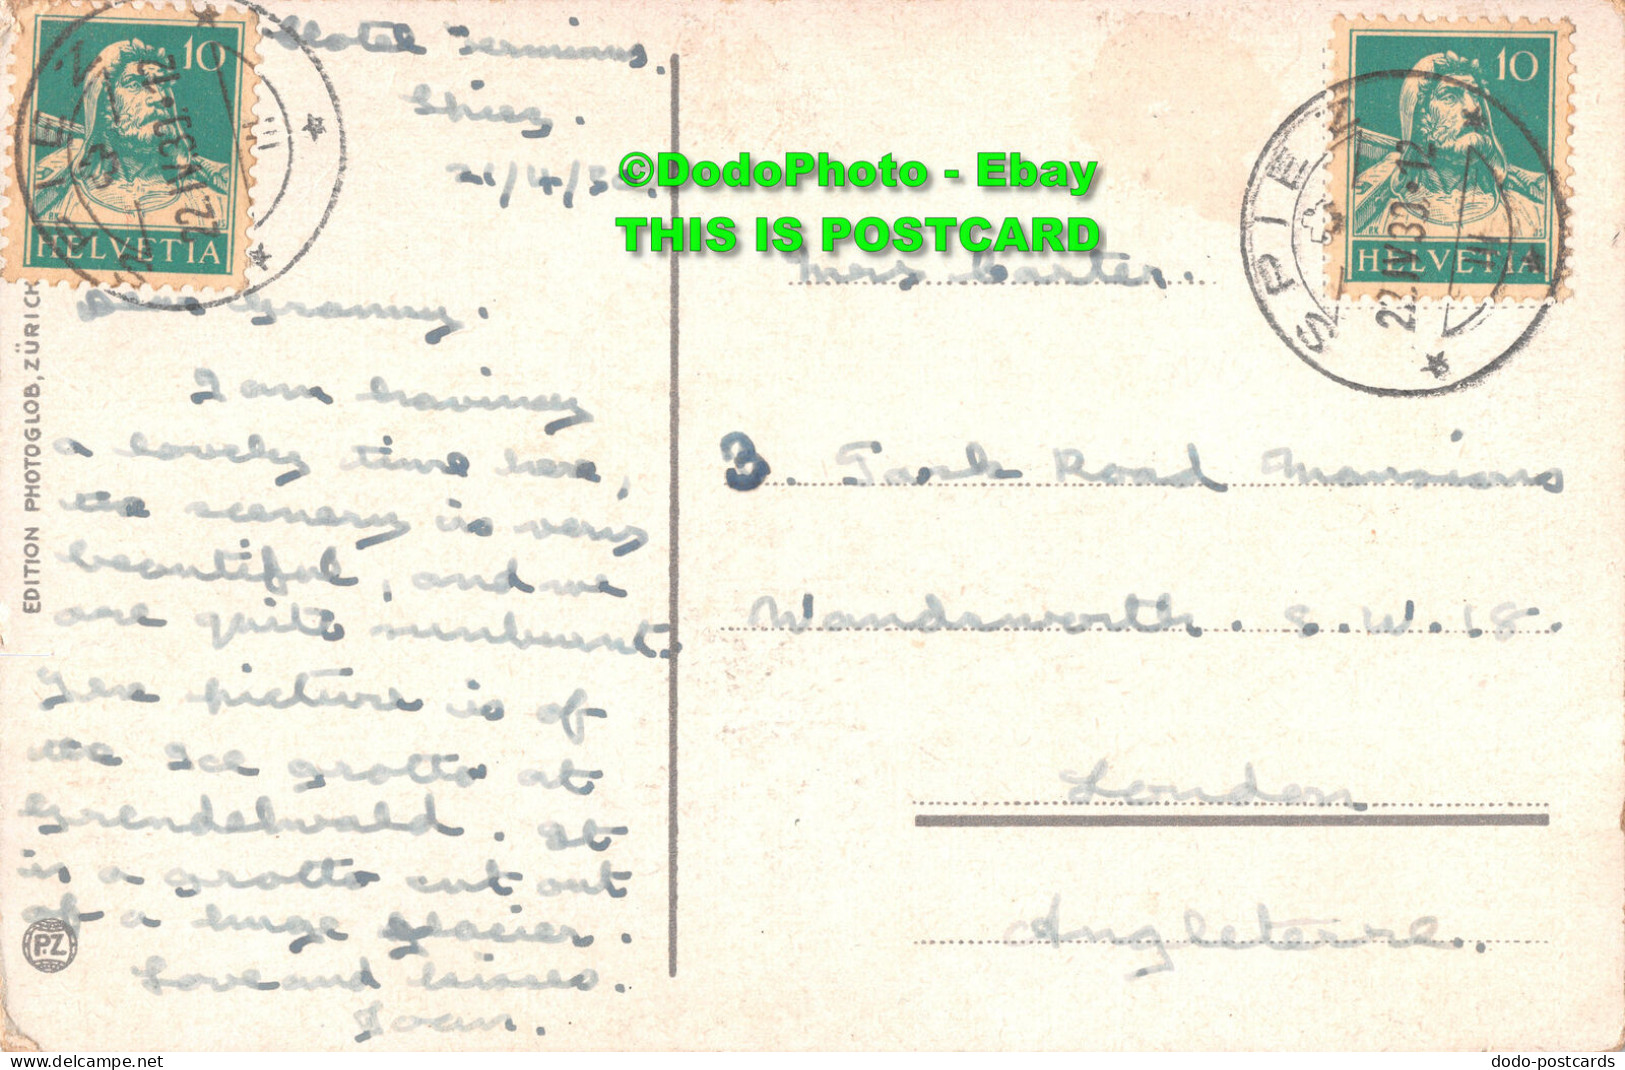 Hotel Terminus.
Spiez.
21/4/32.
10
HELVETIA
10
HELVETIA
SPIEZ
22.IV.32.-12
©DodoPhoto - Ebay
THIS IS POSTCARD
Dear Granny.
I am having
a lovely time here,
the scenery is very
beautiful, and we
are quite sunburnt.
The picture is of
the Ice grotto at
Grendelwald. It
is a grotto cut out
of a huge glacier.
Love and kisses.
Joan.
Mrs Carter.
3. Park Road Mansions
Wandsworth. S.W.18.
London
Angleterre.
EDITION PHOTOGLOB, ZÜRICH
P.Z
dodo-postcards